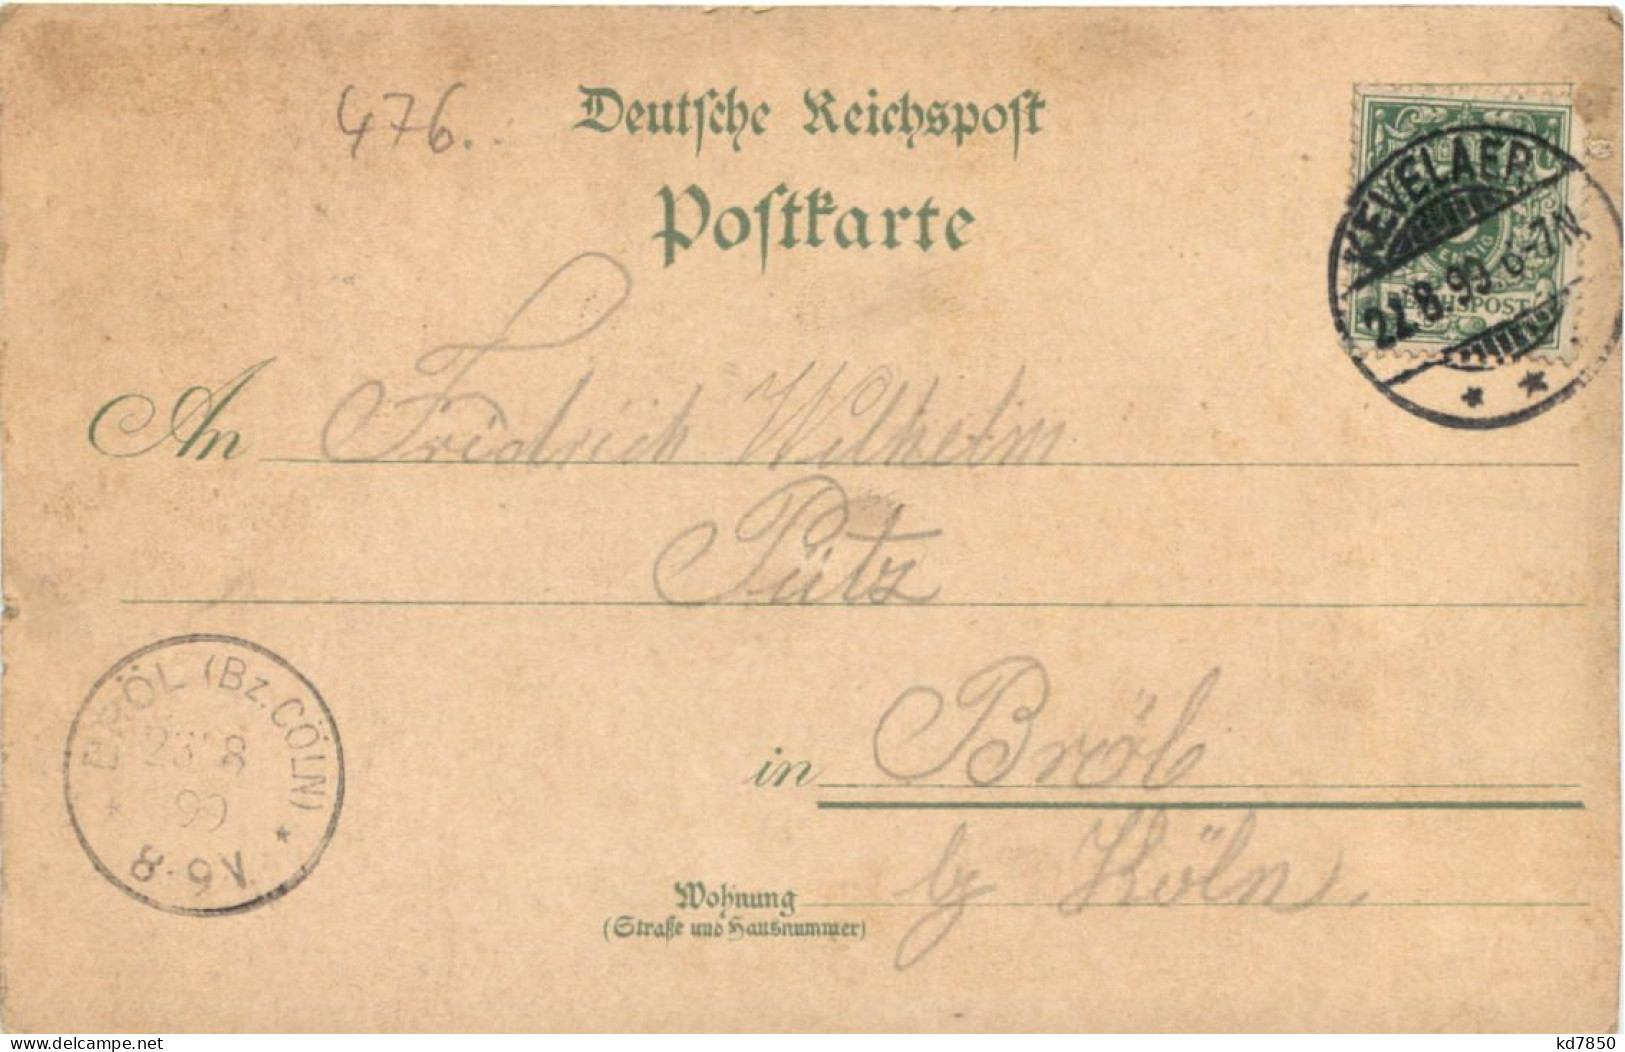 476.
Deutsche Reichspost
Postkarte
KEVELAER
22.8.99. 6-7N
REICHSPOST
An Fridrich Wilhelm
Pütz
BRÖL (Bz. CÖLN)
23 8
99
8-9V.
in Bröl
bz Köln.
Wohnung
(Straße und Hausnummer)
delcampe.net
kd7850